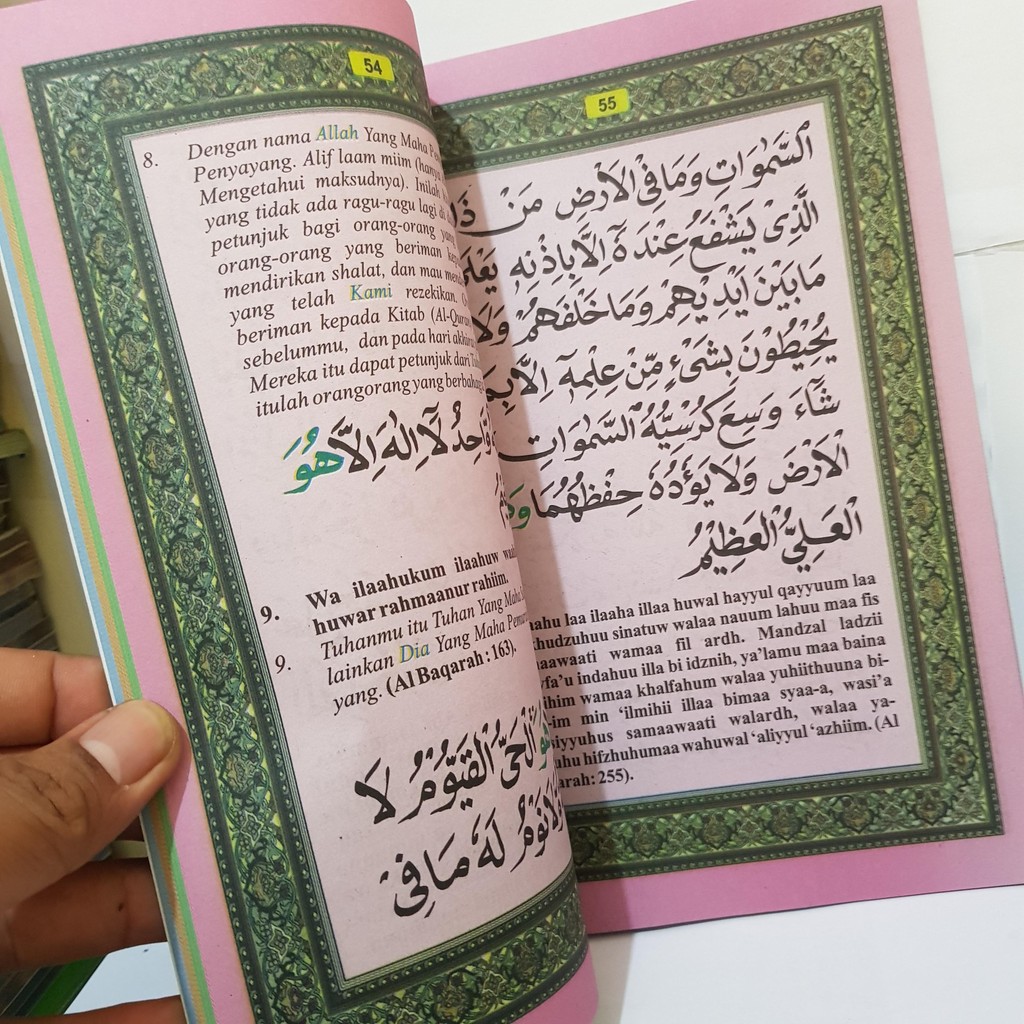 54
8. Dengan nama Allah Yang Maha
Penyayang. Alif laam miim (hanya
Mengetahui maksudnya). Inilah
yang tidak ada ragu-ragu lagi
petunjuk bagi orang-orang
orang-orang yang beriman
mendirikan shalat, dan mau
yang telah Kami rezekikan.
beriman kepada Kitab (Al-Quran
sebelummu, dan pada hari akhirat
Mereka itu dapat petunjuk dari
itulah orangorang yang
وَّاحِدٌ لَآ اِلٰهَ اِلَّا هُوَ
9. Wa ilaahukum ilaahuw
huwar rahmaanur rahiim.
9. Tuhanmu itu Tuhan Yang Maha
lainkan Dia Yang Maha
yang. (Al Baqarah : 163).
الْحَيُّ الْقَيُّوْمُ لَا
نَوْمٌ لَهٗ مَا فِى
55
السَّمٰوَاتِ وَمَا فِى الْاَرْضِ مَنْ ذَا
الَّذِى يَشْفَعُ عِنْدَهٗٓ اِلَّا بِاِذْنِهٖ يَعْلَمُ
مَا بَيْنَ اَيْدِيْهِمْ وَمَا خَلْفَهُمْ وَلَا
يُحِيْطُوْنَ بِشَىْءٍ مِّنْ عِلْمِهٖٓ اِلَّا بِمَا
شَآءَ وَسِعَ كُرْسِيُّهُ السَّمٰوَاتِ
الْاَرْضَ وَلَا يَؤُدُهٗ حِفْظُهُمَا
الْعَلِيُّ الْعَظِيْمُ
laa ilaaha illaa huwal hayyul qayyuum laa
sinatuw walaa nauum lahuu maa fis
wamaa fil ardh. Mandzal ladzii
indahuu illa bi idznih, ya’lamu maa baina
wamaa khalfahum walaa yuhiithuuna bi-
min ‘ilmihii illaa bimaa syaa-a, wasi’a
samaawaati walardh, walaa ya-
hifzhuhumaa wahuwal ‘aliyyul ‘azhiim. (Al
255).